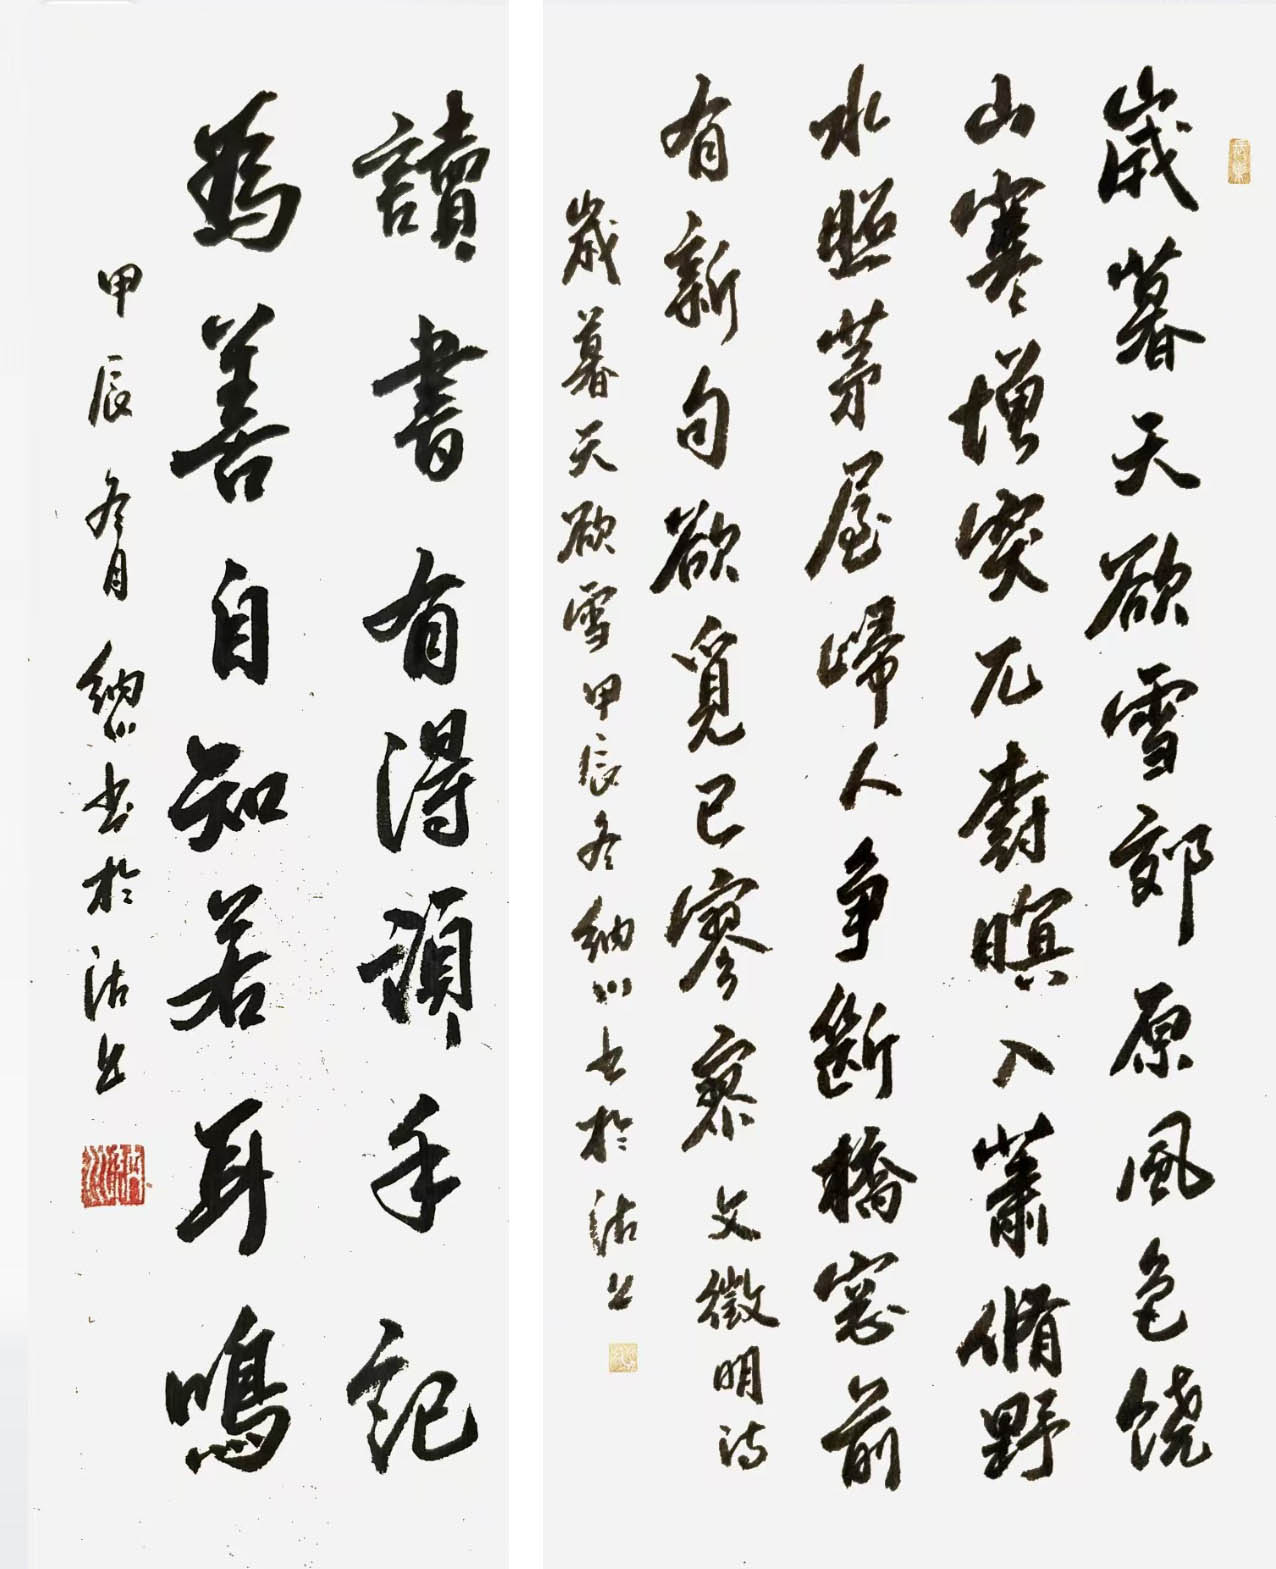 歲暮天欲雪郊原風色饒
山寒增突兀樹暝入蕭脩野
水照茅屋歸人爭斷橋窓前
有新句欲覓已寥寥 文徵明詩
歲暮天欲雪甲辰冬納川書於沽上
讀書有得須手記
為善自知若耳鳴
甲辰冬月納川書於沽上